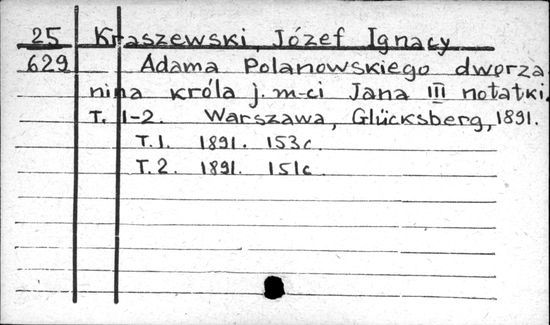 25 Kraszewski, Józef Ignacy
629 Adama Polanowskiego dworza
nina króla j. m-ci Jana III notatki.
T. 1-2. Warszawa, Glücksberg, 1891.
T. 1. 1891. 153 c.
T. 2. 1891. 151 c.